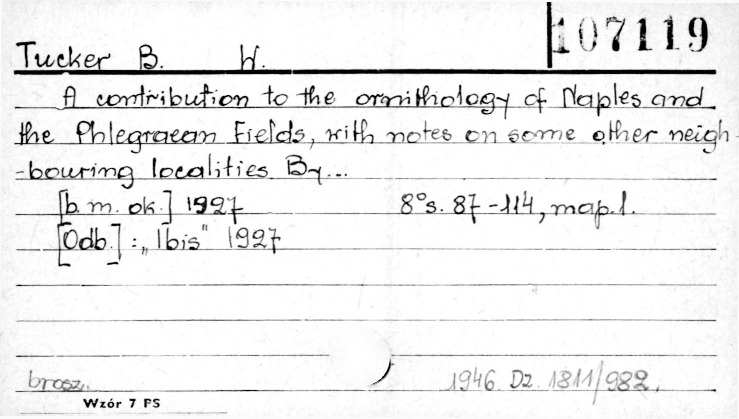 107119
Tucker B. W.
A contribution to the ornithology of Naples and
the Phlegraean Fields, with notes on some other neigh
-bouring localities By...
[b. m. ok.] 1927 8°s. 87-114, map.1.
[Odb.]: „Ibis" 1927
brosz. 1946 Dz. 1811/982.
Wzór 7 PS